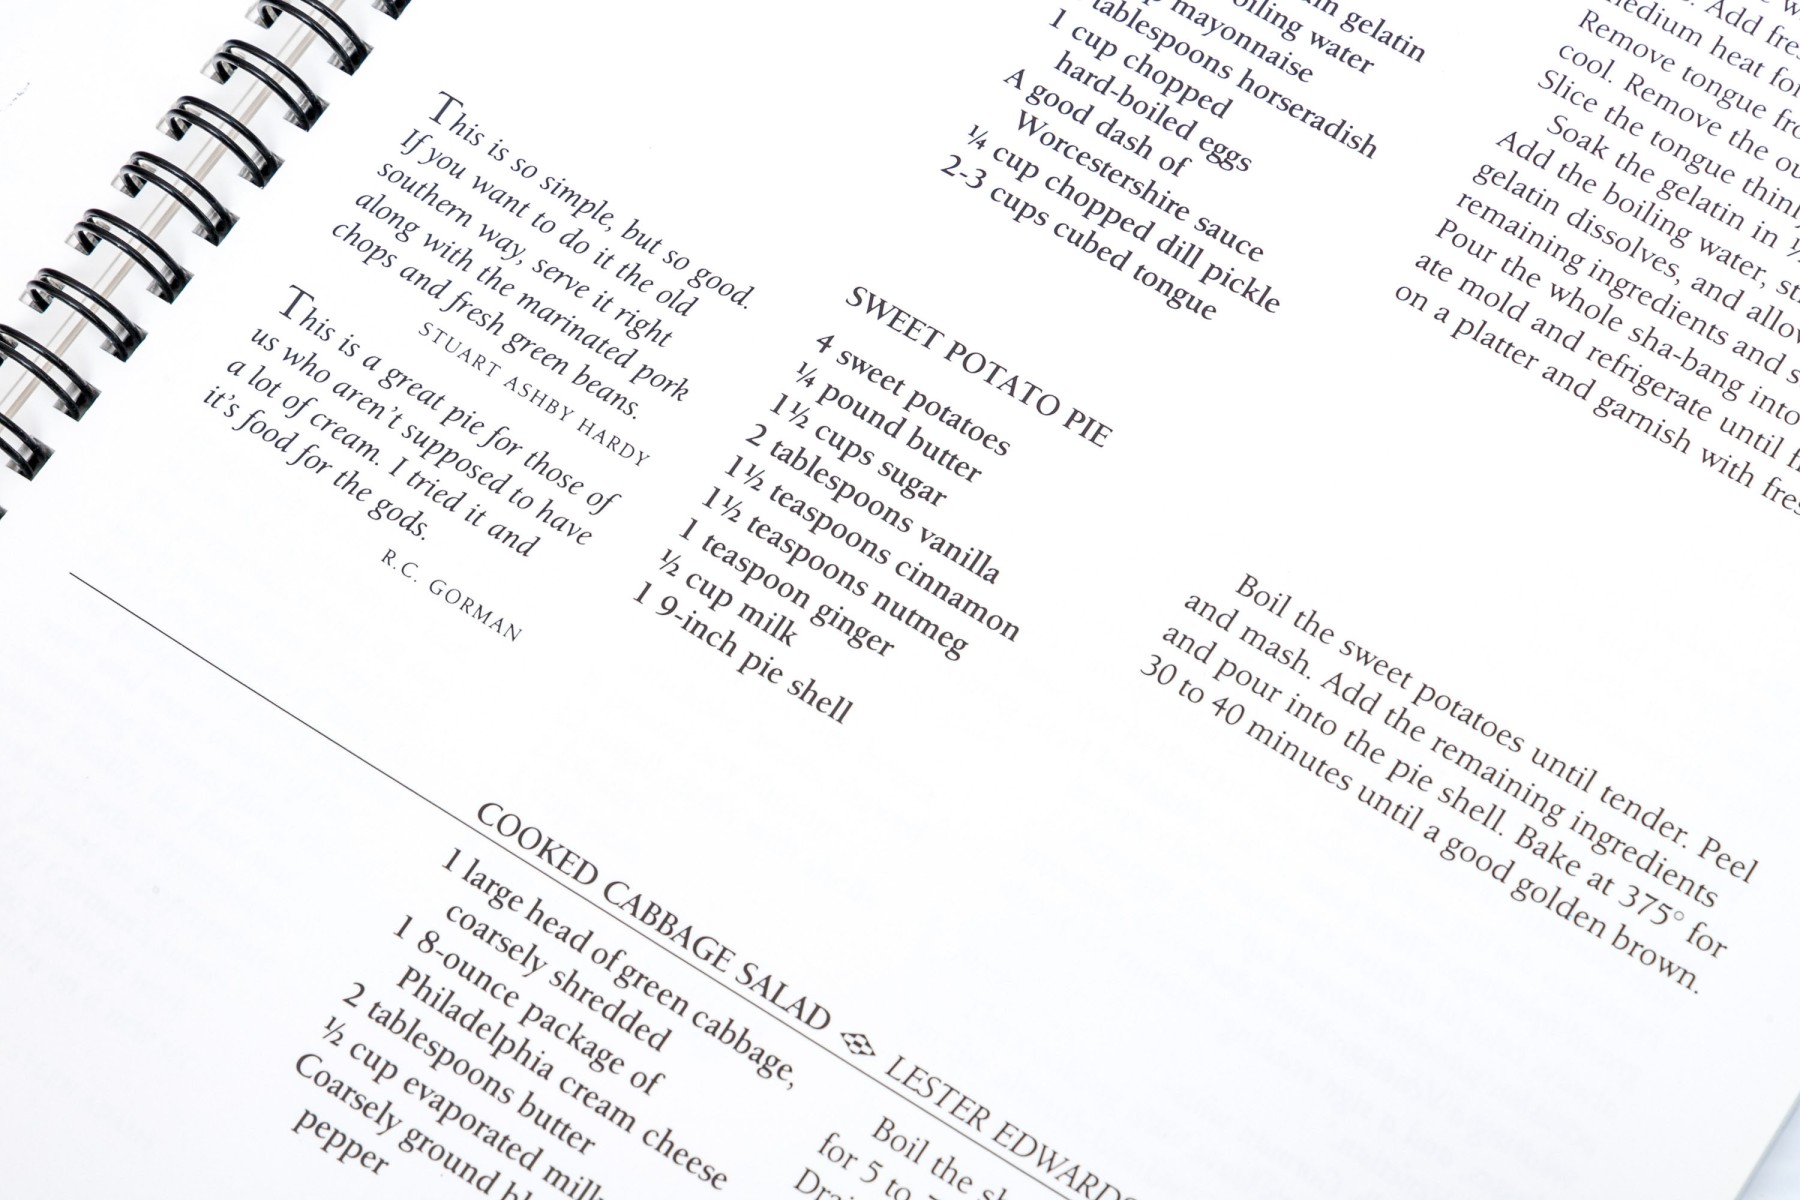 This is so simple, but so good.
If you want to do it the old
southern way, serve it right
along with the marinated pork
chops and fresh green beans.
STUART ASHBY HARDY
This is a great pie for those of
us who aren't supposed to have
a lot of cream. I tried it and
it's food for the gods.
R.C. GORMAN
gelatin
boiling water
mayonnaise
tablespoons horseradish
1 cup chopped
hard-boiled eggs
A good dash of
Worcestershire sauce
¼ cup chopped dill pickle
2-3 cups cubed tongue
Add
medium heat for
Remove tongue
cool. Remove the
Slice the tongue
Soak the gelatin in
Add the boiling water,
gelatin dissolves, and
remaining ingredients and
Pour the whole sha-bang into
ate mold and refrigerate until
on a platter and garnish with
SWEET POTATO PIE
4 sweet potatoes
¼ pound butter
1½ cups sugar
2 tablespoons vanilla
1½ teaspoons cinnamon
1½ teaspoons nutmeg
1 teaspoon ginger
½ cup milk
1 9-inch pie shell
Boil the sweet potatoes until tender. Peel
and mash. Add the remaining ingredients
and pour into the pie shell. Bake at 375° for
30 to 40 minutes until a good golden brown.
COOKED CABBAGE SALAD LESTER EDWARDS
1 large head of green cabbage,
coarsely shredded
1 8-ounce package of
Philadelphia cream cheese
2 tablespoons butter
½ cup evaporated milk
Coarsely ground
pepper
Boil the
for 5 to